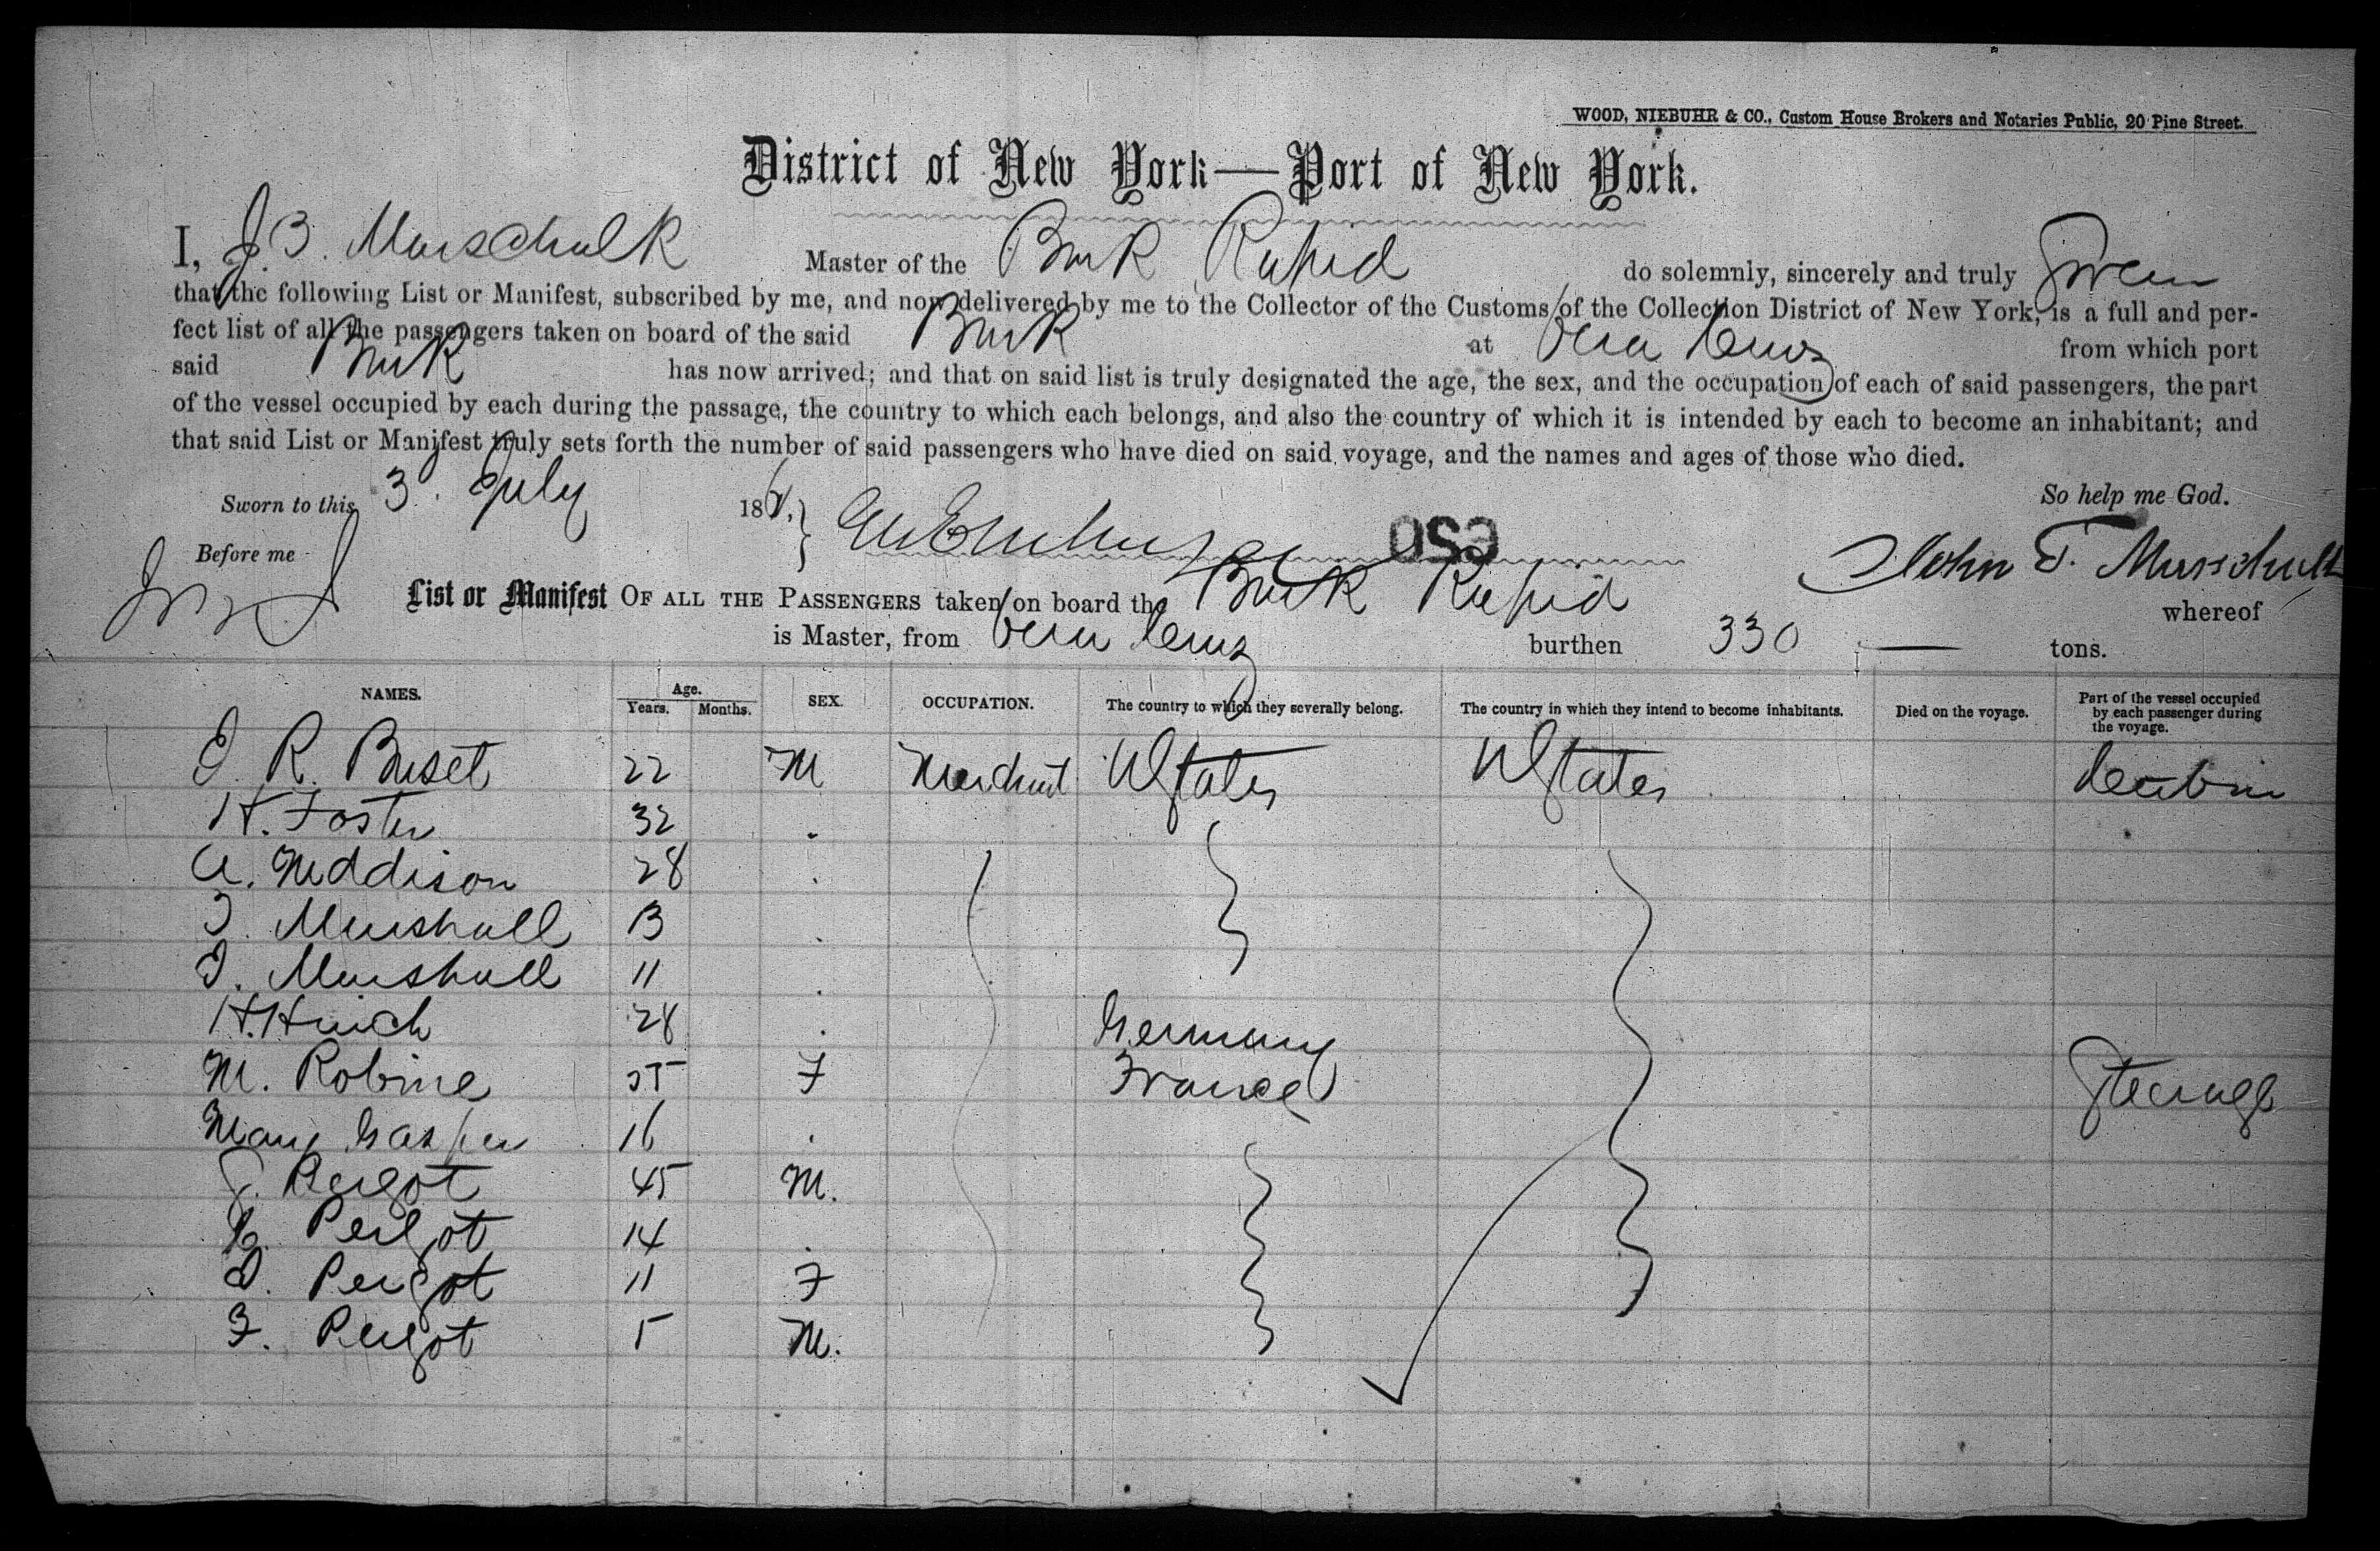 WOOD, NIEBUHR & CO., Custom House Brokers and Notaries Public, 20 Pine Street.
District of New York—Port of New York.
I, J. B. Marschalk Master of the Bark Rapid do solemnly, sincerely and truly Swear
that the following List or Manifest, subscribed by me, and now delivered by me to the Collector of the Customs of the Collection District of New York, is a full and per-
fect list of all the passengers taken on board of the said Bark at Vera Cruz from which port
said Bark has now arrived; and that on said list is truly designated the age, the sex, and the occupation of each of said passengers, the part
of the vessel occupied by each during the passage, the country to which each belongs, and also the country of which it is intended by each to become an inhabitant; and
that said List or Manifest truly sets forth the number of said passengers who have died on said voyage, and the names and ages of those who died.
Sworn to this 3. July 186 So help me God.
Before me 650 John T. Marschalk
List or Manifest OF ALL THE PASSENGERS taken on board the Bark Rapid whereof
is Master, from Vera Cruz burthen 330 — tons.
NAMES. Age. Years. Months. SEX. OCCUPATION. The country to which they severally belong. The country in which they intend to become inhabitants. Died on the voyage. Part of the vessel occupied by each passenger during the voyage.
R. 22 M Merchant U States U States Cabin
H. Foster 32 .
A. Maddison 28 .
Marshall 13 .
Marshall 11 .
H. 28 . Germany
M. Robine F France Steerage
Mary Gasper 16 .
J. Pergot 45 M.
C. Pergot 14 .
Pergot 11 F
F. Pergot 5 M.